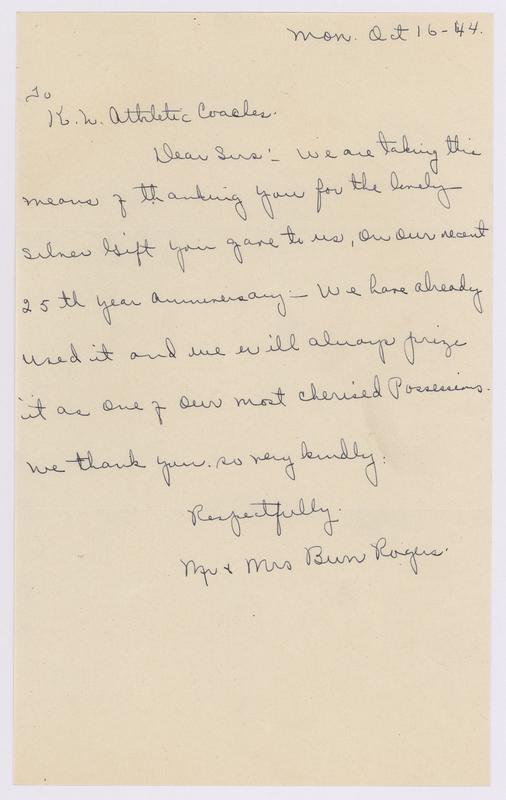 Mon. Oct 16-44.
To
K. L. Athletic Coaches.
Dear Sirs:- We are taking this
means of thanking you for the lovely
Silver Gift you gave to us, on our recent
25th year anniversary - We have already
used it and we will always prize
it as one of our most cherised Possessions.
We thank you. so very kindly.
Respectfully.
Mr & Mrs Bun Rogers.